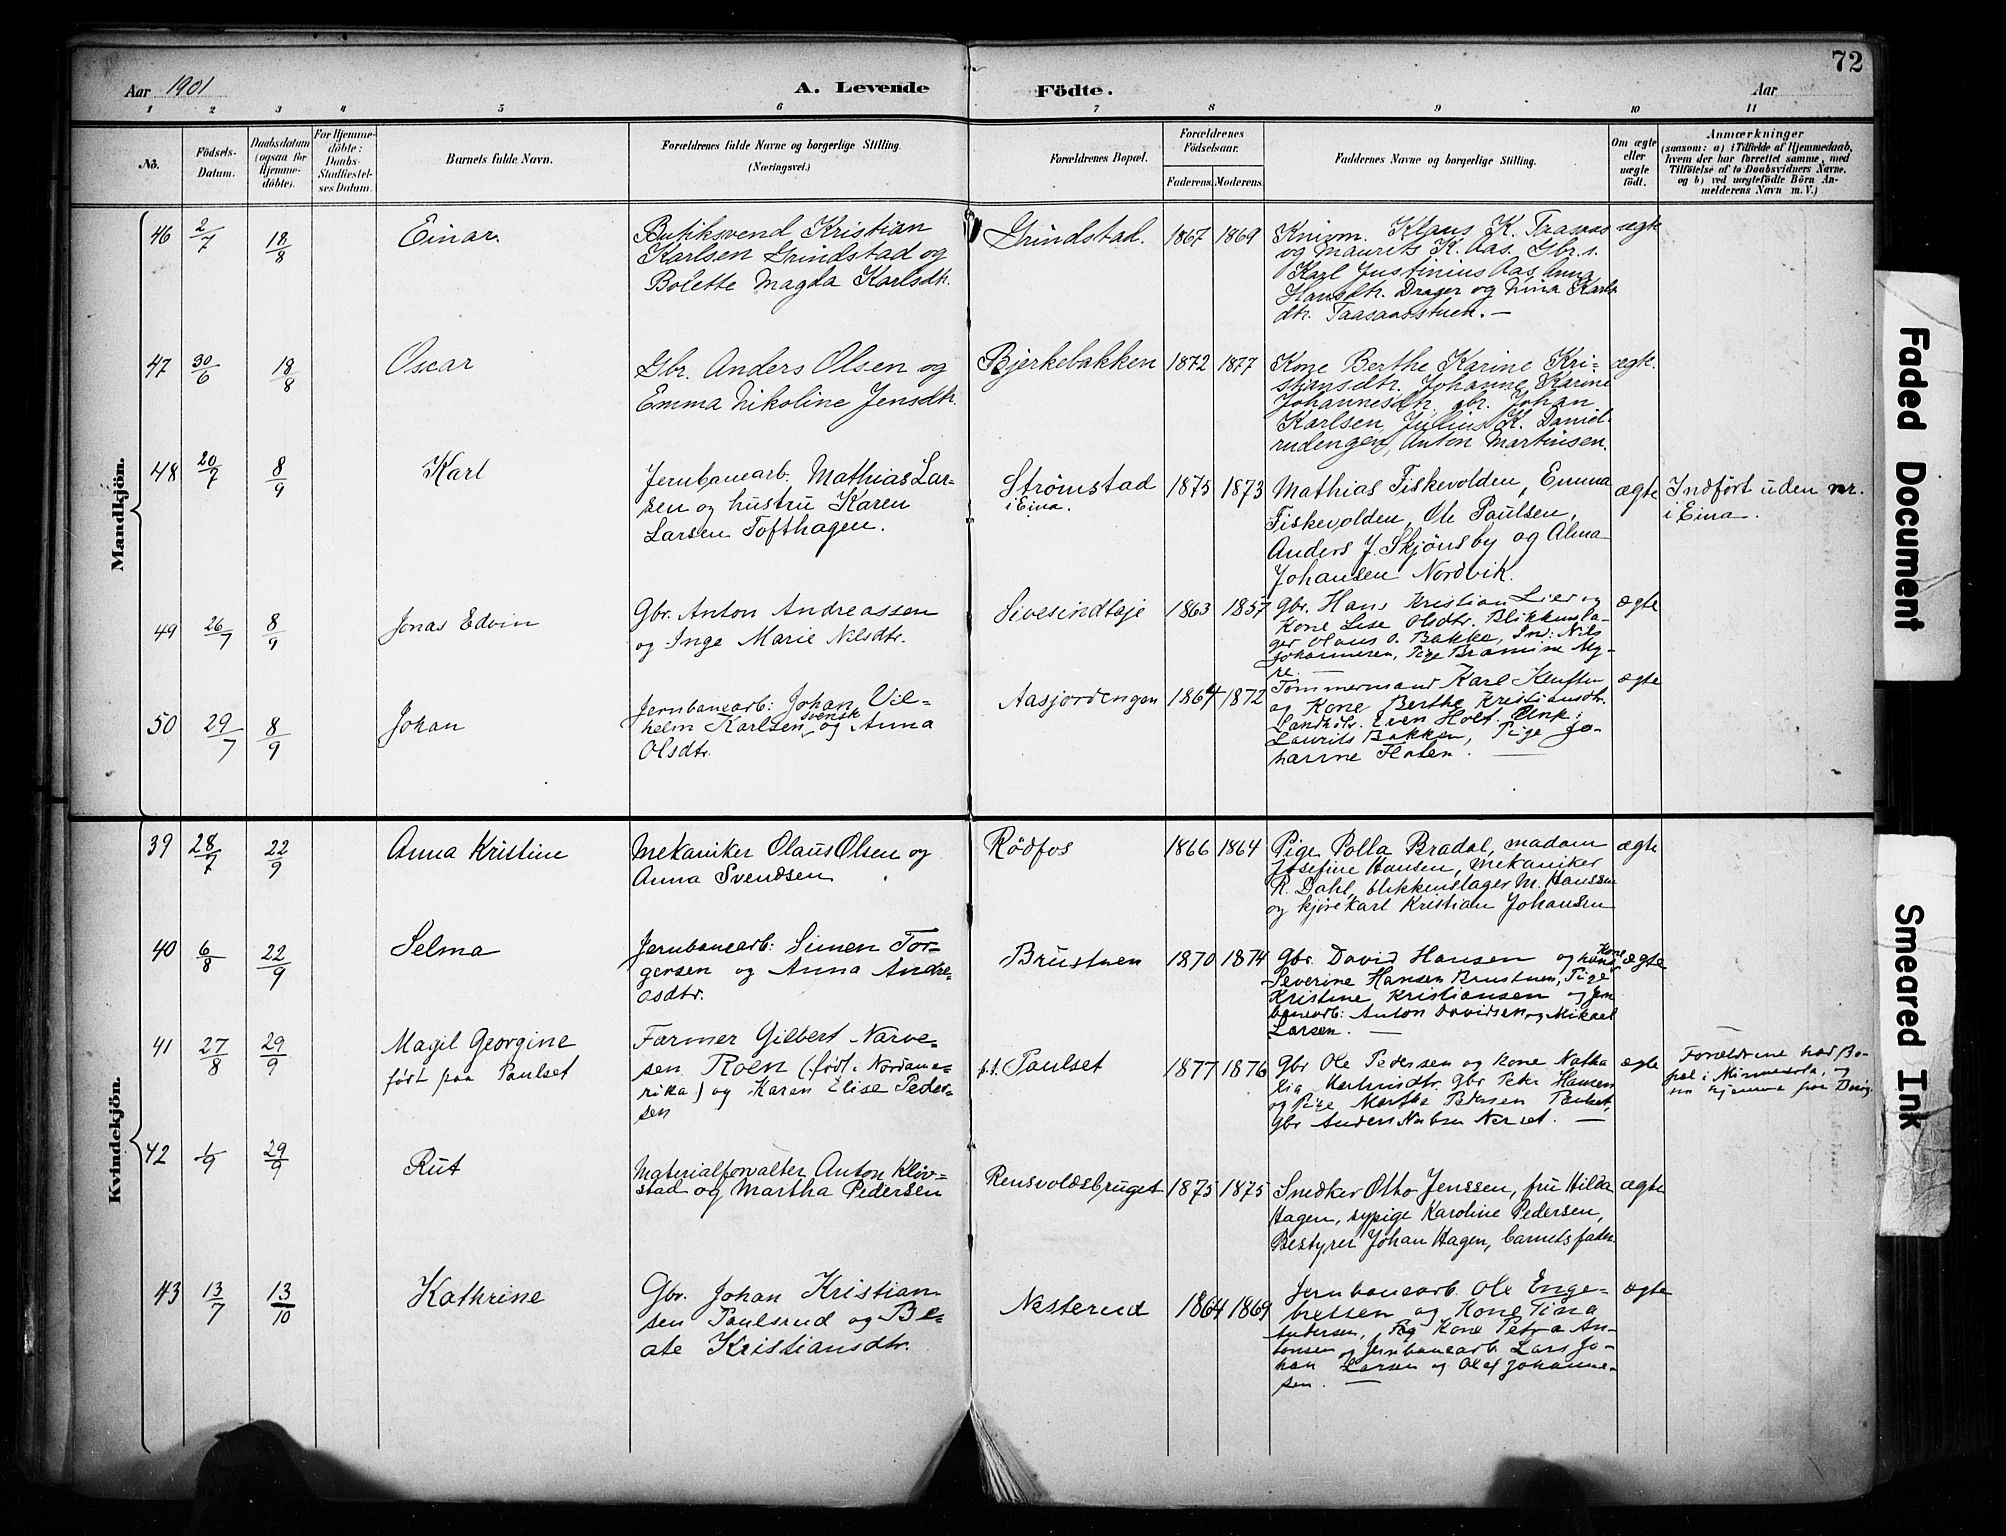 72
Aar 1901
A. Levende
Födte.
Aar
1 2 3 4 5 6 7 8 9 10 11
No.
Födsels-
Datum.
Daabsdatum
(ogsaa for
Hjemme-
döbte).
For Hjemme-
döbte:
Daabs-
Stadfæstel-
ses Datum.
Barnets fulde Navn.
Forældrenes fulde Navne og borgerlige Stilling.
(Næringsvei.)
Forældrenes Bopæl.
Forældrenes
Födselsaar.
Faderens. Moderens.
Faddernes Navne og borgerlige Stilling.
Om ægte
eller
uægte
födt.
Anmærkninger
(saasom: a) i Tilfælde af Hjemmedaab,
hvem der har forrettet samme, med
Tilföielse af to Daabsvidners Navne,
og b) ved uægtefödte Börn An-
melderens Navn m. V.)
Mandkjön.
46 2/7 18/8 Einar.
Butiksvend Kristian
Karlsen Grindstad og
Bolette Magda Karlsdtr.
Grindstad. 1867 1869
Knivm. Klaus K. Taasaas
og Maurits K. Aas. Gbr. s.
Karl Justinius Aas, Anna
Hansdtr. Drager og Nina Karls
dtr. Taasaasstuen. —
ægte
47 30/6 18/8 Oscar
Gbr. Anders Olsen og
Emma Nikoline Jensdtr.
Bjerkebakken 1872 1877
Kone Berthe Karine Kri-
stiansdtr. Johanne Karine
Johannesdtr. gbr. Johan
Karlsen, Julius K. Daniel-
rudengen, Anton Martinsen.
ægte.
48 20/7 8/9 Karl
Jernbanearb. Mathias Lar-
sen og hustru Karen
Larsen Tofthagen.
Strømstad
i Eina.
1875 1873
Mathias Fiskevolden, Emma
Fiskevolden, Ole Paulsen,
Anders J. Skjønsby og Alma
Johansen Nordvik.
ægte
Indført uden nr.
i Eina.
49 26/7 8/9 Jonas Edvin
Gbr. Anton Andreassen
og Inge Marie Nilsdtr.
Sivesindtaje 1863 1857
Gbr. Hans Kristian Lier og
Kone Lise Olsdtr. Blikkensla-
ger Olaus O. Bakke, In: Nils
Johannesen, Pige Bramine My-
re. —
ægte
50 29/7 8/9 Johan
Jernbanearb: Johan Vil-
helm Karlsen svensk og Anna
Olsdtr.
Aasjordengen 1864 1872
Tømmermand Karl Kluften
og Kone Berthe Kristiansdtr.
Landhdr. Even Holt. Unk:
Laurits Bakken, Pige Jo-
hanne Floten. —
ægte
Kvindekjön.
39 28/7 22/9 Anna Kristine
Mekaniker Olaus Olsen og
Anna Svendsen
Rødfos 1866 1864
Pige Polla Bradal, madam
Josefine Hansen, mekaniker
R. Dahl, blikkenslager M. Hanssen
og kjørekarl Kristian Johansen
ægte
40 6/8 22/9 Selma
Jernbanearb: Simen Tor-
gersen og Anna Andre-
asdtr.
Brustuen 1870 1874
Gbr. David Hansen og Kone
Severine Hansen Brustuen, Pige
Kristine Kristiansen og Jern
banearb: Anton Davidsen og Mikael
Larsen. —
ægte
41 27/8 29/9 Magil Georgine
født paa Paulset
Farmer Gilbert Narve-
sen Roen (født i Nordame-
rika) og Karen Elise Peder-
sen
p.t. Paulset 1877 1876
Gbr Ole Pedersen og Kone Natha
lia dtr. Gbr Peter Hansen
og Pige Marthe Pedersen Paulset,
Gbr Anders Nerset. —
ægte
—
Forældrene har Bo-
pæl i Minnesota, og
hjemme paa
42 1/9 29/9 Rut
Materialforvalter Anton Kløv-
stad og Martha Pedersen
Rensvoldsbruget 1875 1875
Snedker Otto Jenssen, fru Hilda
Hagen, sypige Karoline Pedersen,
Bestyrer Johan Hagen, barnets fader
ægte
43 13/7 13/10 Kathrine
Gbr. Johan Kristian-
sen Paulsrud og Be-
ate Kristiansdtr.
Nesterud 1864 1869
Jernbanearb. Ole Enge-
bretsen og Kone Tina
Andersen, Kone Petra An-
tonsen og Jernbanearb. Lars Jo-
han Larsen og Olaf Johanne-
sen. —
ægte
Faded Document
Smeared Ink